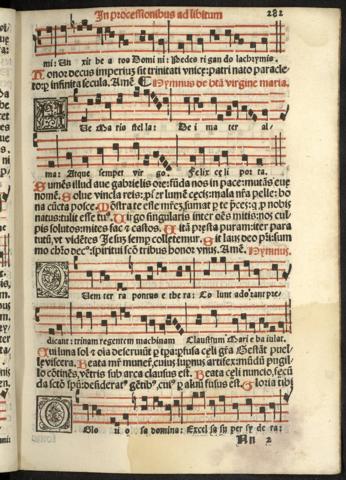 In processionibus ad libitum 282
mi: Un xit be a tos Domi ni: Pedes ri gan do lachrymis.
Honor decus imperiuȝ sit trinitati vnice: patri nato paracle
toqȝ infinita secula. Amē. Hymnus de btā virgine maria.
Ave Ma ris stella: De i ma ter al
ma: Atque semper vir go. Felix celi porta.
Sumēs illud aue gabrielis ore: fūda nos in pace: mutās eue
nomē. Solue vincla reis: lumē cecis: mala nr̄a pelle: bo
na cūcta posce. Mōstra te esse mr̄eȝ, sumat p te p̄ces: q p nobis
natus: tulit esse tuꝰ. Uirgo singularis inter oēs mitis: nos cul
pis solutos: mites fac & castos. Uitā presta puram: iter para
tutū, vt vidētes Jesuȝ semꝑ colletemur. Sit laus deo pr̄i: sum
mo chr̄o decꝰ: spiritui scō tribus honor vnus. Amē. Hymnus.
Quem ter ra pontus e the ra: Co lunt ado rant pre
dicant: trinam regentem machinam Claustrum Mari e ba iulat.
Cui luna sol &
le viscera. Beata mr̄ munere, cuius supernus artifex: mūdū pugil
lo cōtinēs, vētris sub arca clausus est. Beata celi nuncio, fecū
da sctō spū: desideratꝰ gētibꝰ, cuiꝰ p aluū fusus est. Gloria tibi
O Glo ri o sa domina: Excel sa super sy de ra:
Nn 2